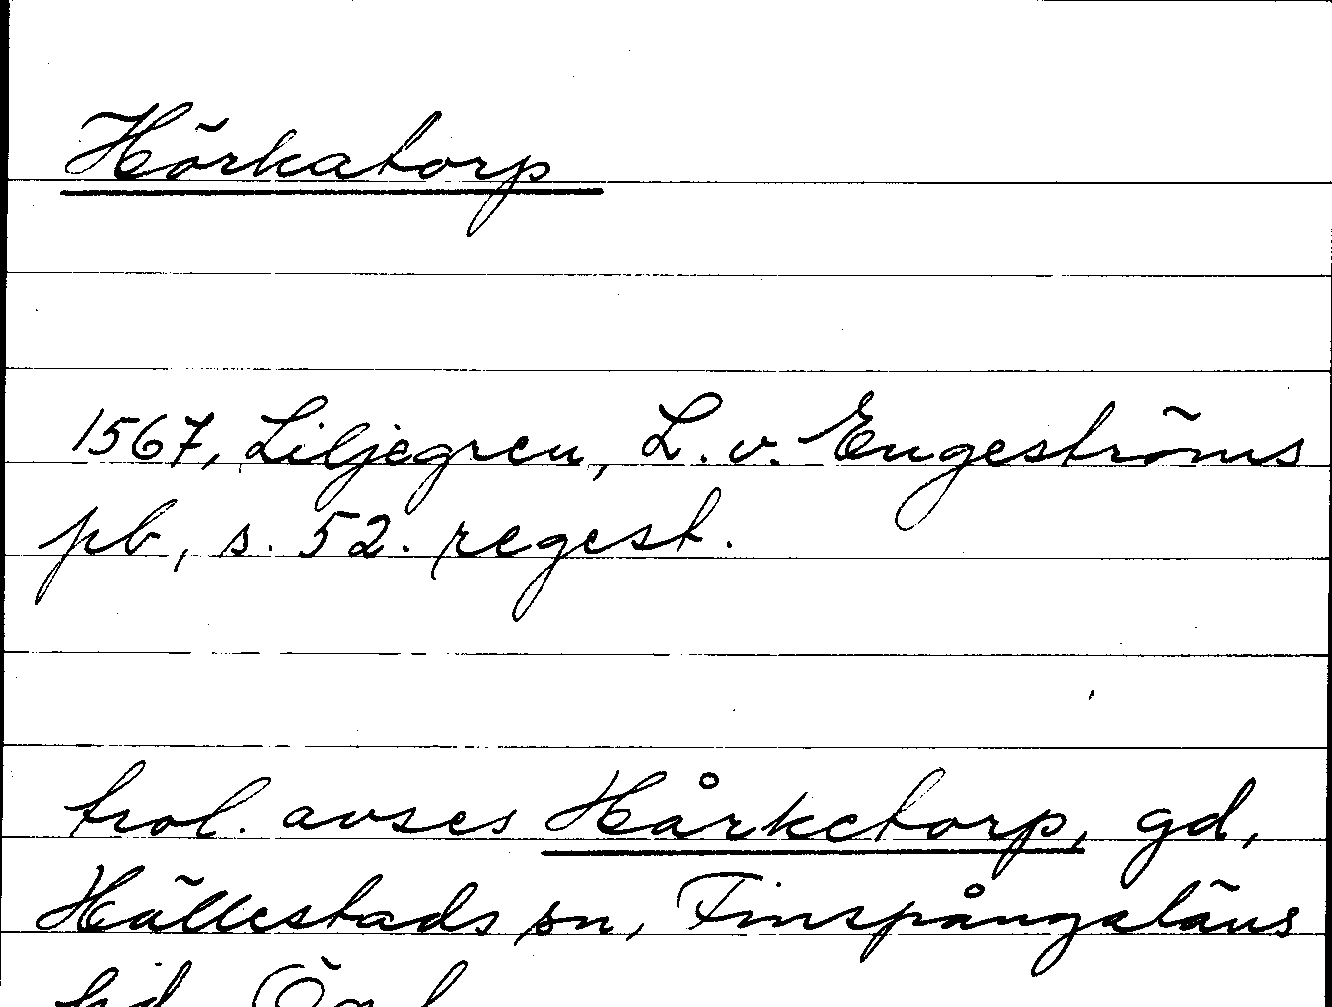 Hörkatorp
1567, Liljegren, L. v. Engeströms
pb, s. 52. regest.
trol. avses Hårketorp, gd,
Hällestads sn, Finspångaläns
hd, Ög